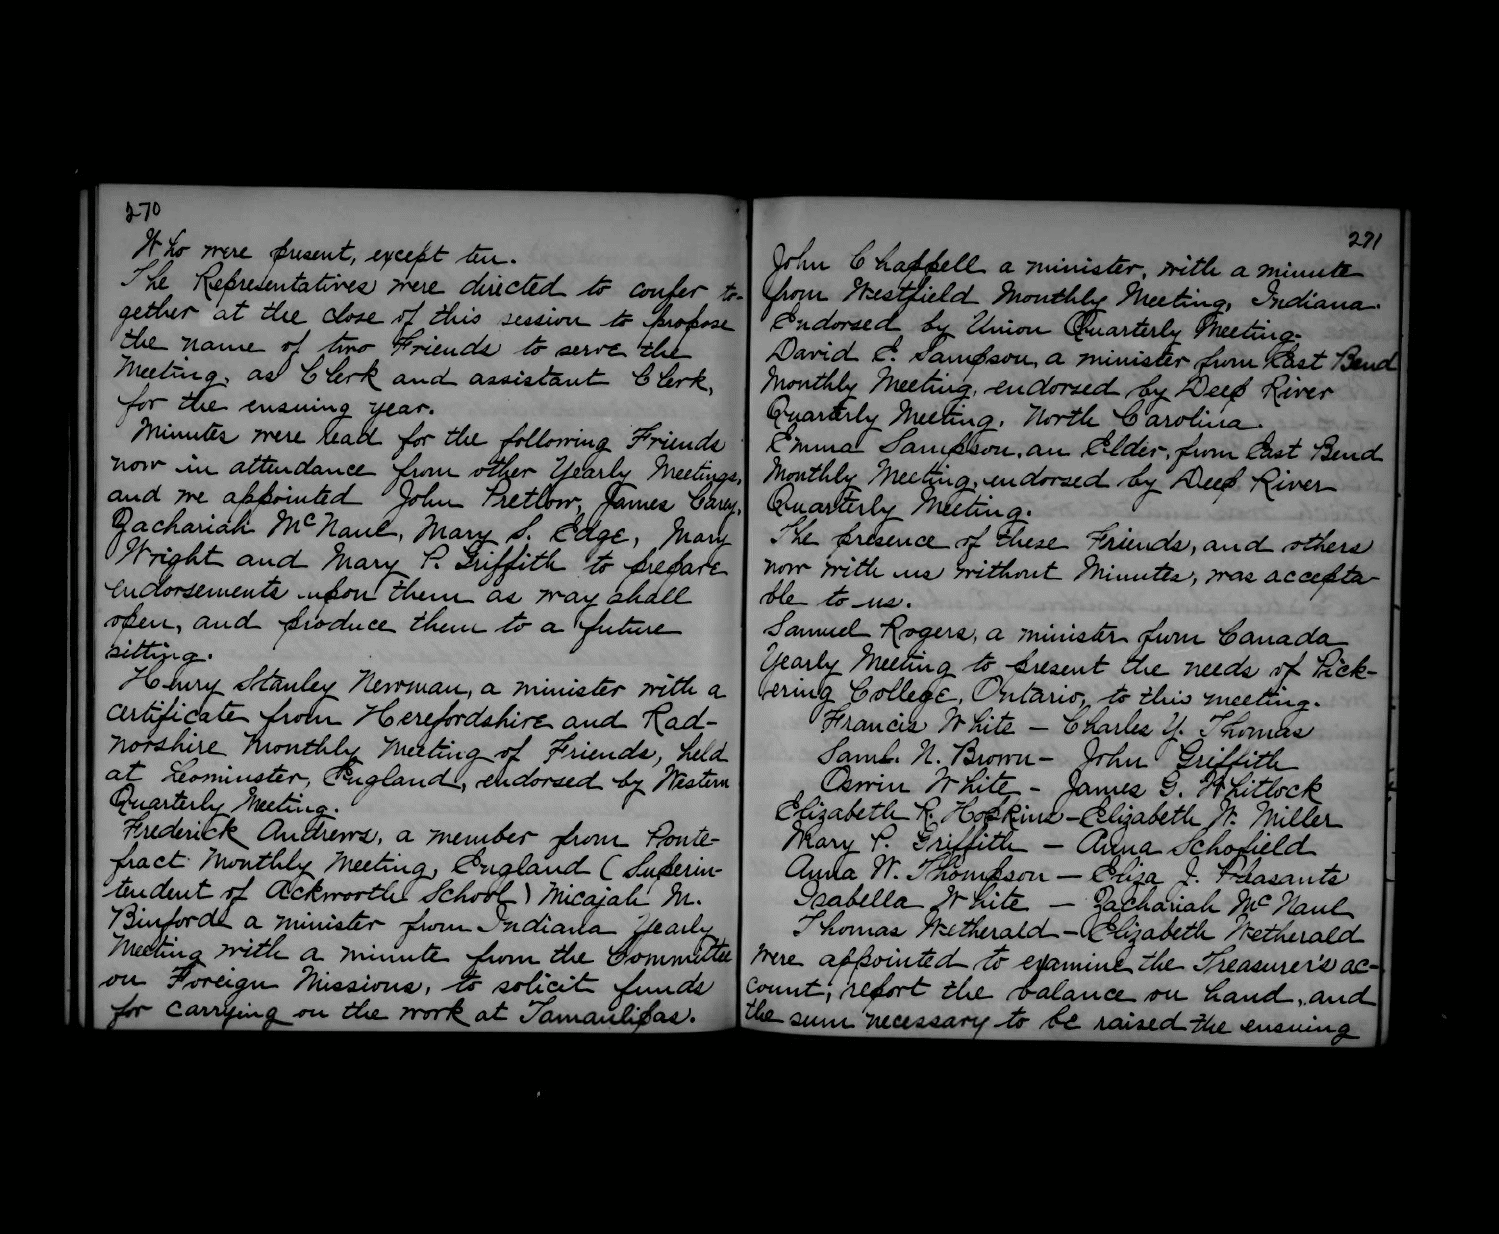 270
Who were present, except ten.
The Representatives were directed to confer to-
gether at the close of this session to propose
the name of two Friends to serve the
Meeting, as Clerk and assistant Clerk,
for the ensuing year.
Minutes were read for the following Friends
now in attendance from other Yearly Meetings,
and we appointed John Pretlow, James Carey,
Zachariah McNaul, Mary S. Edge, Mary
Wright and Mary P. Griffith to prepare
endorsements upon them as way shall
open, and produce them to a future
sitting.
Henry Stanley Newman, a minister with a
certificate from Herefordshire and Rad-
norshire Monthly Meeting of Friends, held
at Leominster, England, endorsed by Western
Quarterly Meeting.
Frederick Andrews, a member from Ponte-
fract Monthly Meeting, England (Superin-
tendent of Ackworth School) Micajah M.
Binford a minister from Indiana Yearly
Meeting with a minute from the Committee
on Foreign Missions, to solicit funds
for carrying on the work at Tamaulipas.
271
John Chappell a minister, with a minute
from Westfield Monthly Meeting, Indiana.
Endorsed by Union Quarterly Meeting.
David E. Sampson, a minister from East Bend
Monthly Meeting, endorsed by Deep River
Quarterly Meeting, North Carolina.
Emma Sampson, an Elder, from East Bend
Monthly Meeting, endorsed by Deep River
Quarterly Meeting.
The presence of these Friends, and others
now with us without Minutes, was accepta-
ble to us.
Samuel Rogers, a minister from Canada
Yearly Meeting to present the needs of Pick-
ering College, Ontario, to this meeting.
Francis White – Charles Y. Thomas
Saml. N. Brown – John Griffith
Oswin White – James G. Whitlock
Elizabeth R. Hopkins – Elizabeth W. Miller
Mary P. Griffith – Anna Schofield
Anna W. Thompson – Eliza J. Pleasants
Isabella White – Zachariah McNaul
Thomas Wetherald – Elizabeth Wetherald
were appointed to examine the Treasurer's ac-
count, report the balance on hand, and
the sum necessary to be raised the ensuing